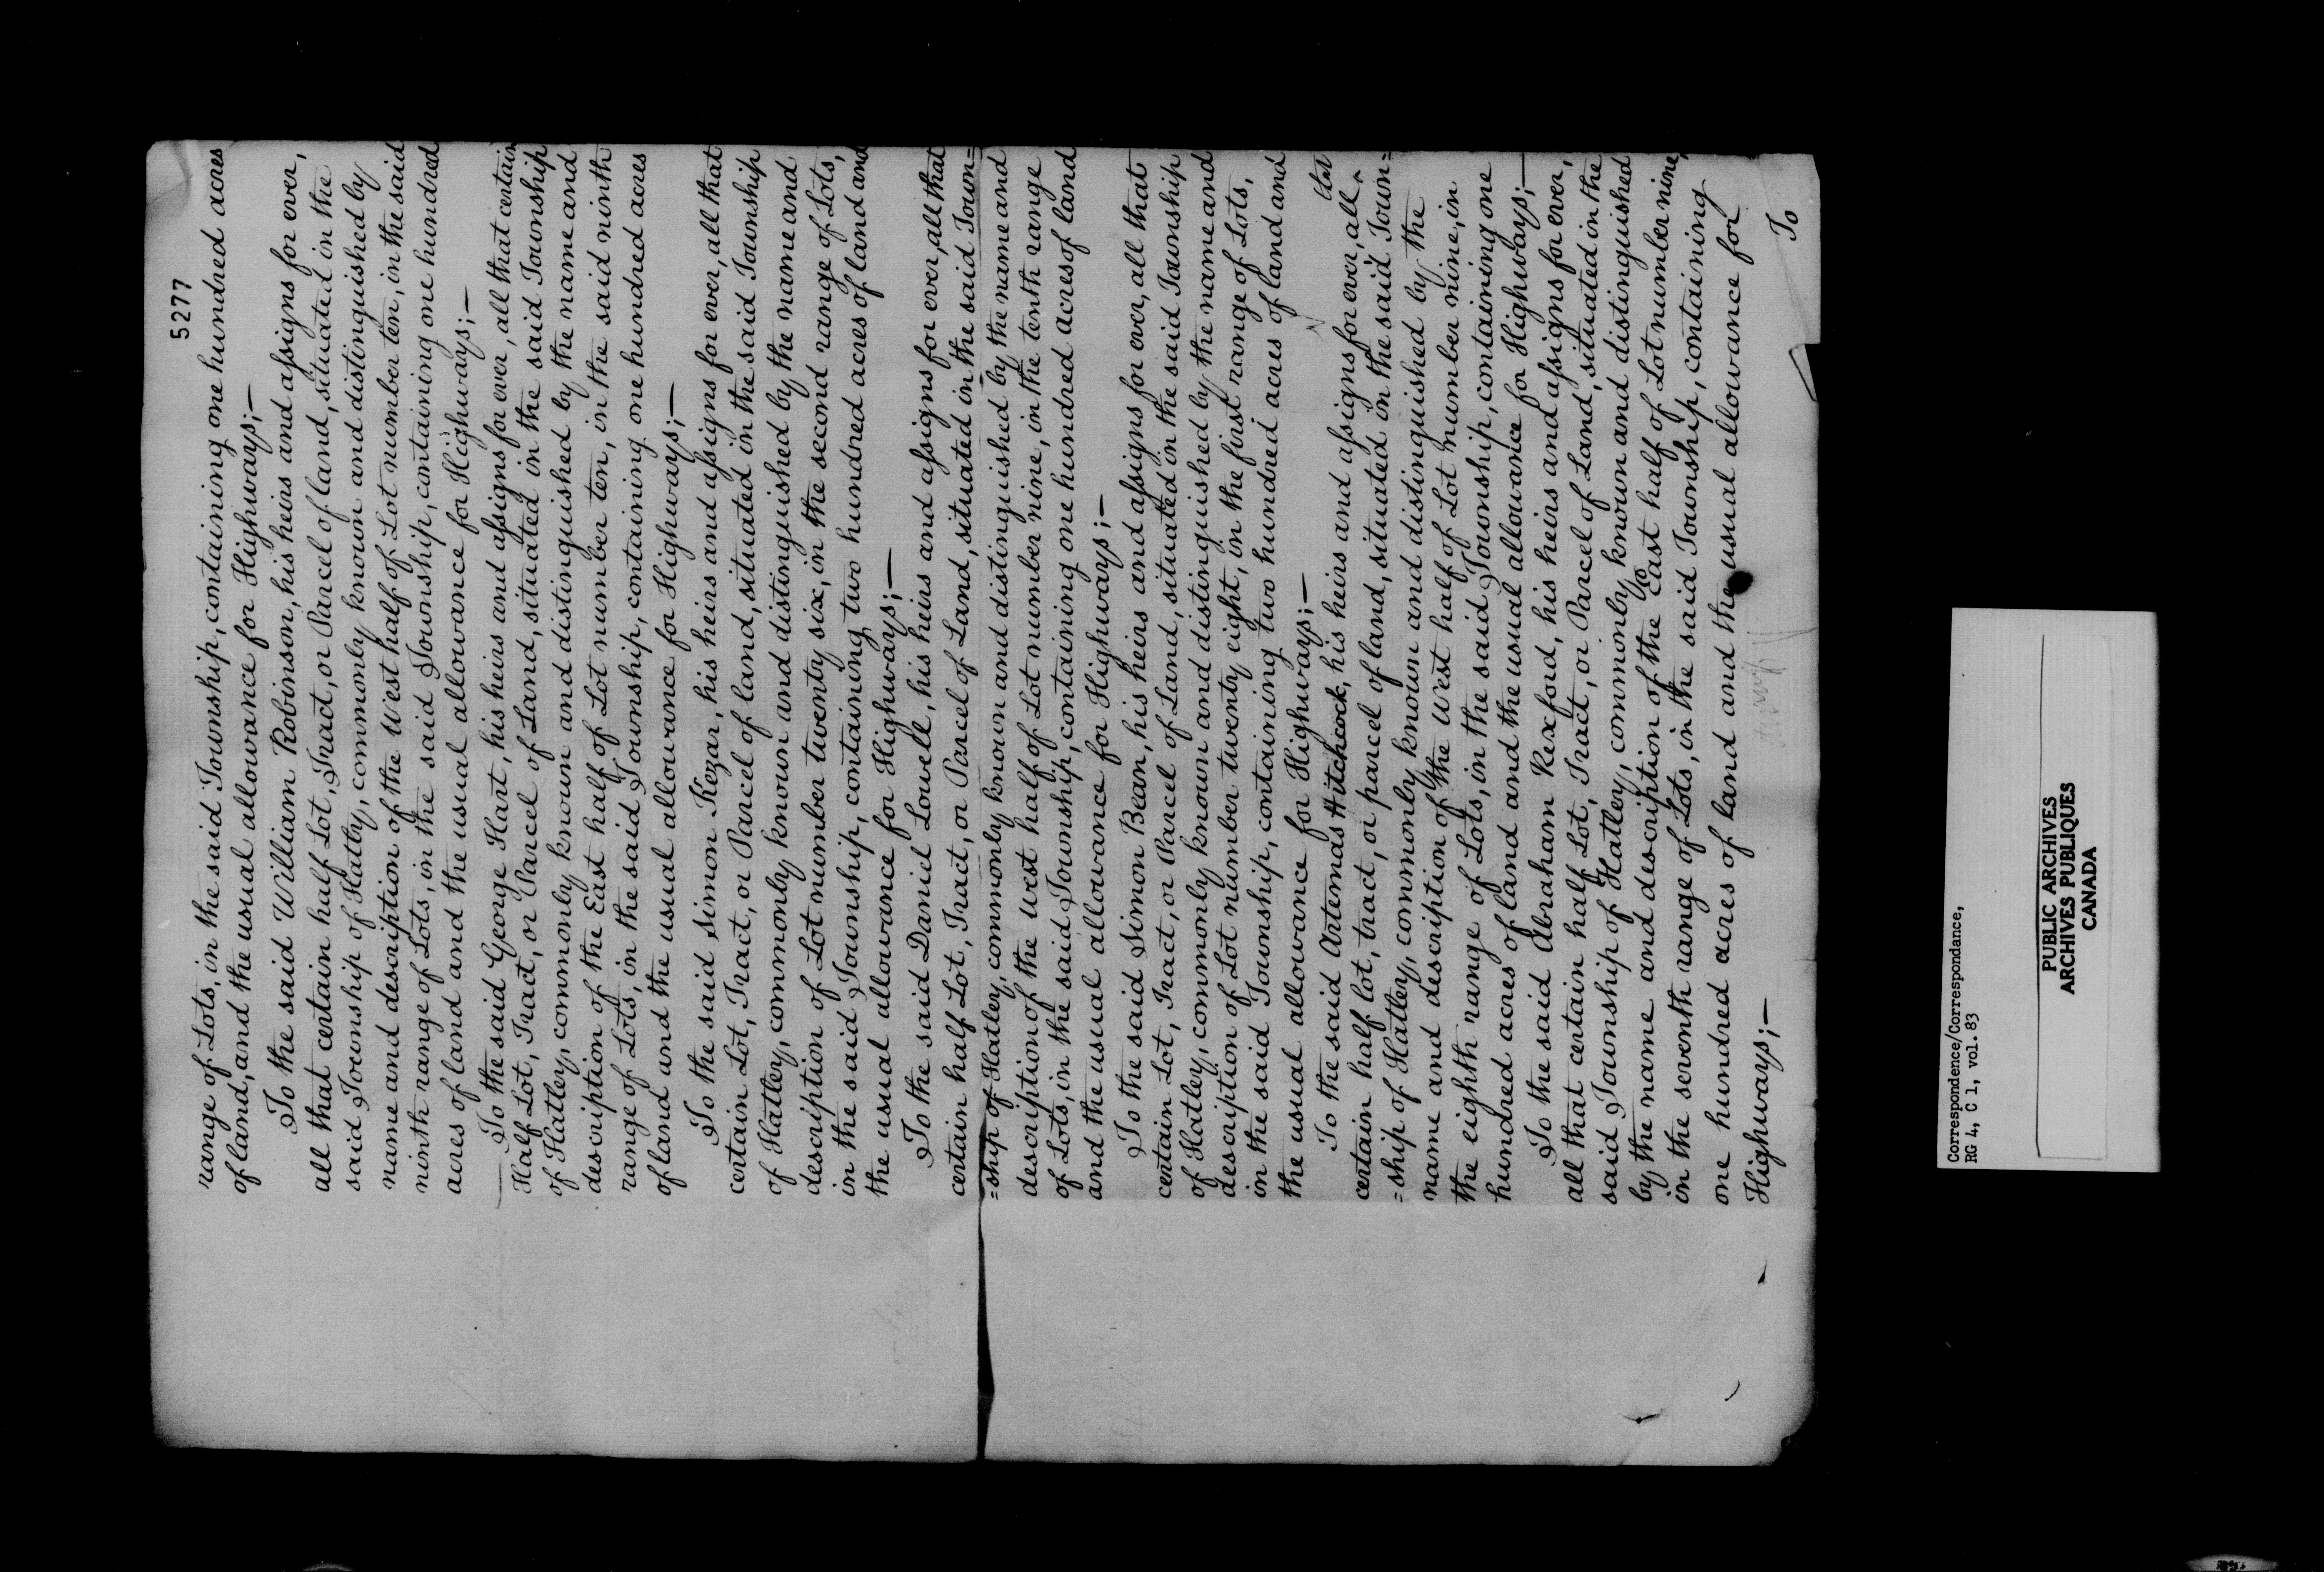 5277
range of Lots, in the said Township, containing one hundred acres
of land, and the usual allowance for Highways;—
To the said William Robinson, his heirs and assigns for ever,
all that certain half Lot, Tract, or Parcel of land, situated in the
said Township of Hatley, commonly known and distinguished by
name and description of the West half of Lot number ten, in the said
ninth range of Lots, in the said Township, containing one hundred
acres of land and the usual allowance for Highways;—
To the said George Hart, his heirs and assigns for ever, all that certain
Half Lot, Tract, or Parcel of Land, situated in the said Township
of Hatley, commonly known and distinguished by the name and
description of the East half of Lot number ten, in the said ninth
range of Lots, in the said Township, containing one hundred acres
of land and the usual allowance for Highways;—
To the said Simon Kezar, his heirs and assigns for ever, all that
certain Lot, Tract, or Parcel of land, situated in the said Township
of Hatley, commonly known and distinguished by the name and
description of Lot number twenty six, in the second range of Lots,
in the said Township, containing two hundred acres of land and
the usual allowance for Highways;—
To the said Daniel Lowell, his heirs and assigns for ever, all that
certain half Lot, Tract, or Parcel of Land, situated in the said Town=
=ship of Hatley, commonly known and distinguished by the name and
description of the west half of Lot number nine, in the tenth range
of Lots, in the said Township, containing one hundred acres of land
and the usual allowance for Highways;—
To the said Simon Bean, his heirs and assigns for ever, all that
certain Lot, Tract, or Parcel of Land, situated in the said Township
of Hatley, commonly known and distinguished by the name and
description of Lot number twenty eight, in the first range of Lots,
in the said Township, containing two hundred acres of land and
the usual allowance for Highways;—
To the said Artemas Hitchcock, his heirs and assigns for ever, all that
certain half lot, tract, or parcel of land, situated in the said Town=
=ship of Hatley, commonly known and distinguished by the
name and description of the West half of Lot number nine, in
the eighth range of Lots, in the said Township, containing one
hundred acres of land and the usual allowance for Highways;—
To the said Abraham Rexford, his heirs and assigns for ever,
all that certain half Lot, Tract, or Parcel of Land, situated in the
said Township of Hatley, commonly known and distinguished
by the name and description of the East half of Lot number nine,
in the seventh range of Lots, in the said Township, containing
one hundred acres of land and the usual allowance for
Highways;—
To
Correspondence/Correspondance,
RG 4, C 1, vol. 83
PUBLIC ARCHIVES
ARCHIVES PUBLIQUES
CANADA